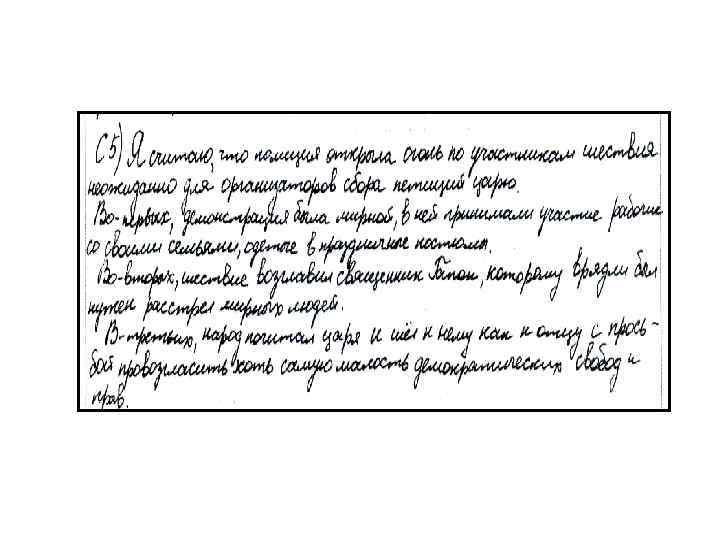 С5) Я считаю, что полиция открыла огонь по участникам шествия
неожиданно для организаторов сбора петиций царю.
Во-первых, демонстрация была мирной, в ней принимали участие рабочие
со своими семьями, одетые в праздничные костюмы.
Во-вторых, шествие возглавил священник Гапон, которому врядли был
нужен расстрел мирных людей.
В-третьих, народ почитал царя и шёл к нему как к отцу с прось-
бой провозгласить хоть самую малость демократических свобод и
прав.